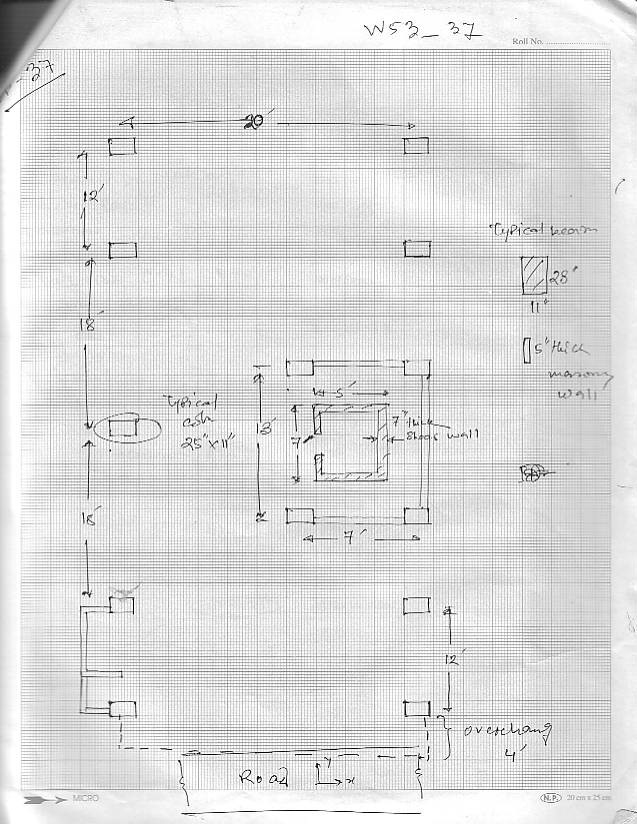 W53_37
Roll No.
-37
20'
12'
Typical beam
28"
11"
18'
5" thick
masonry
wall
Typical
25"x11"
5'
13'
7'
7" thick
shear wall
18'
7'
12'
overhang
4'
Road
y
x
MICRO
N.P.
20 cm x 25 cm